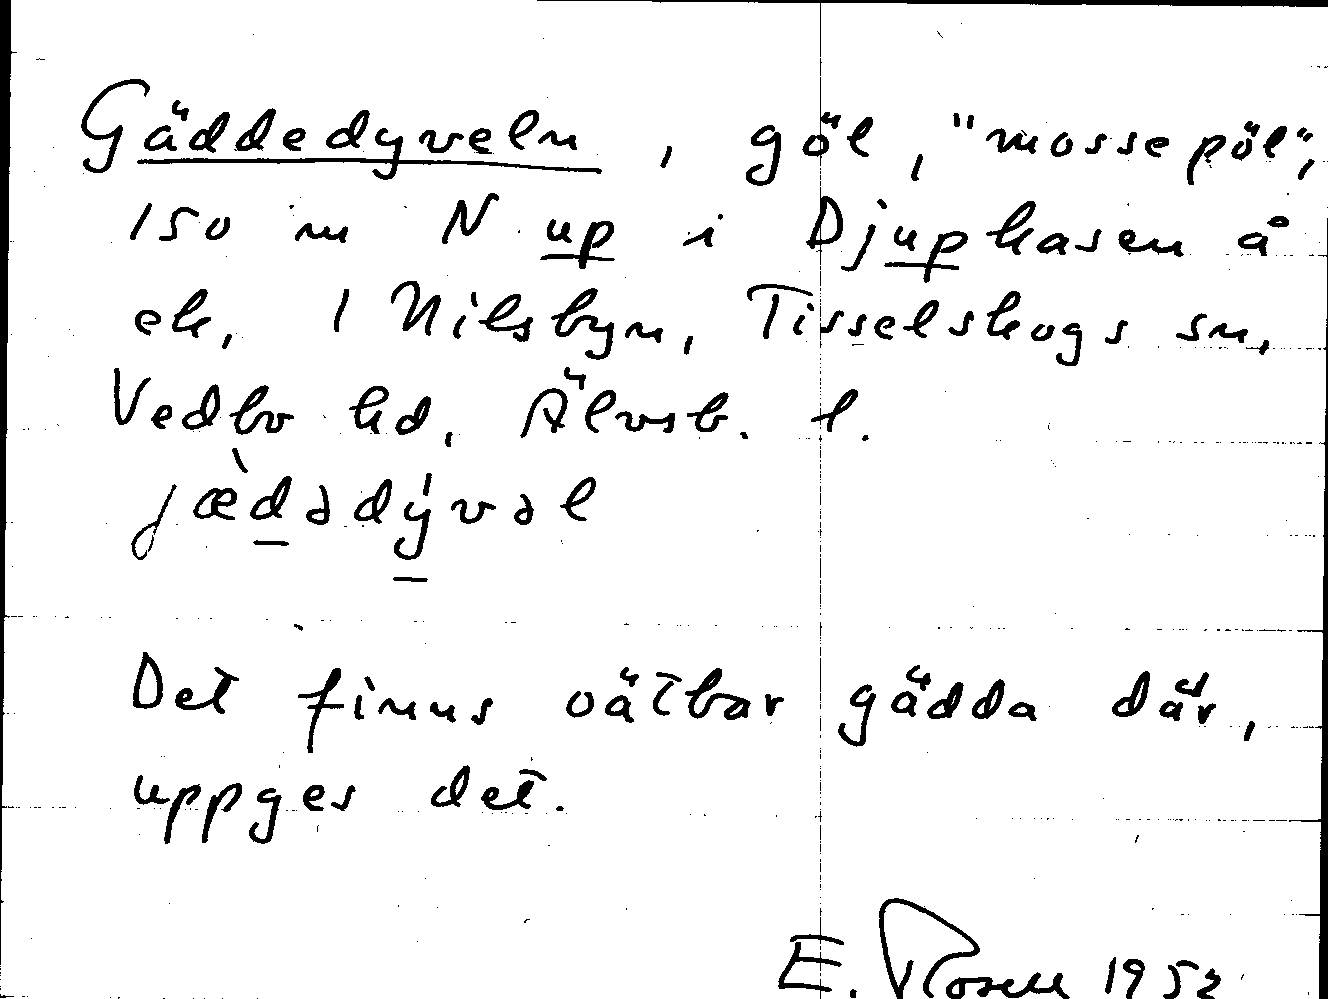 Gäddedyveln, göl, "mossepöl",
150 m N up i Djupkasen å
ek, 1 Nilsbyn, Tisselskogs sn,
Vedbo hd, Älvsb. l.
jæ̀dədývəl
Det finns oätbar gädda där,
uppges det.
E. Rosell 1952